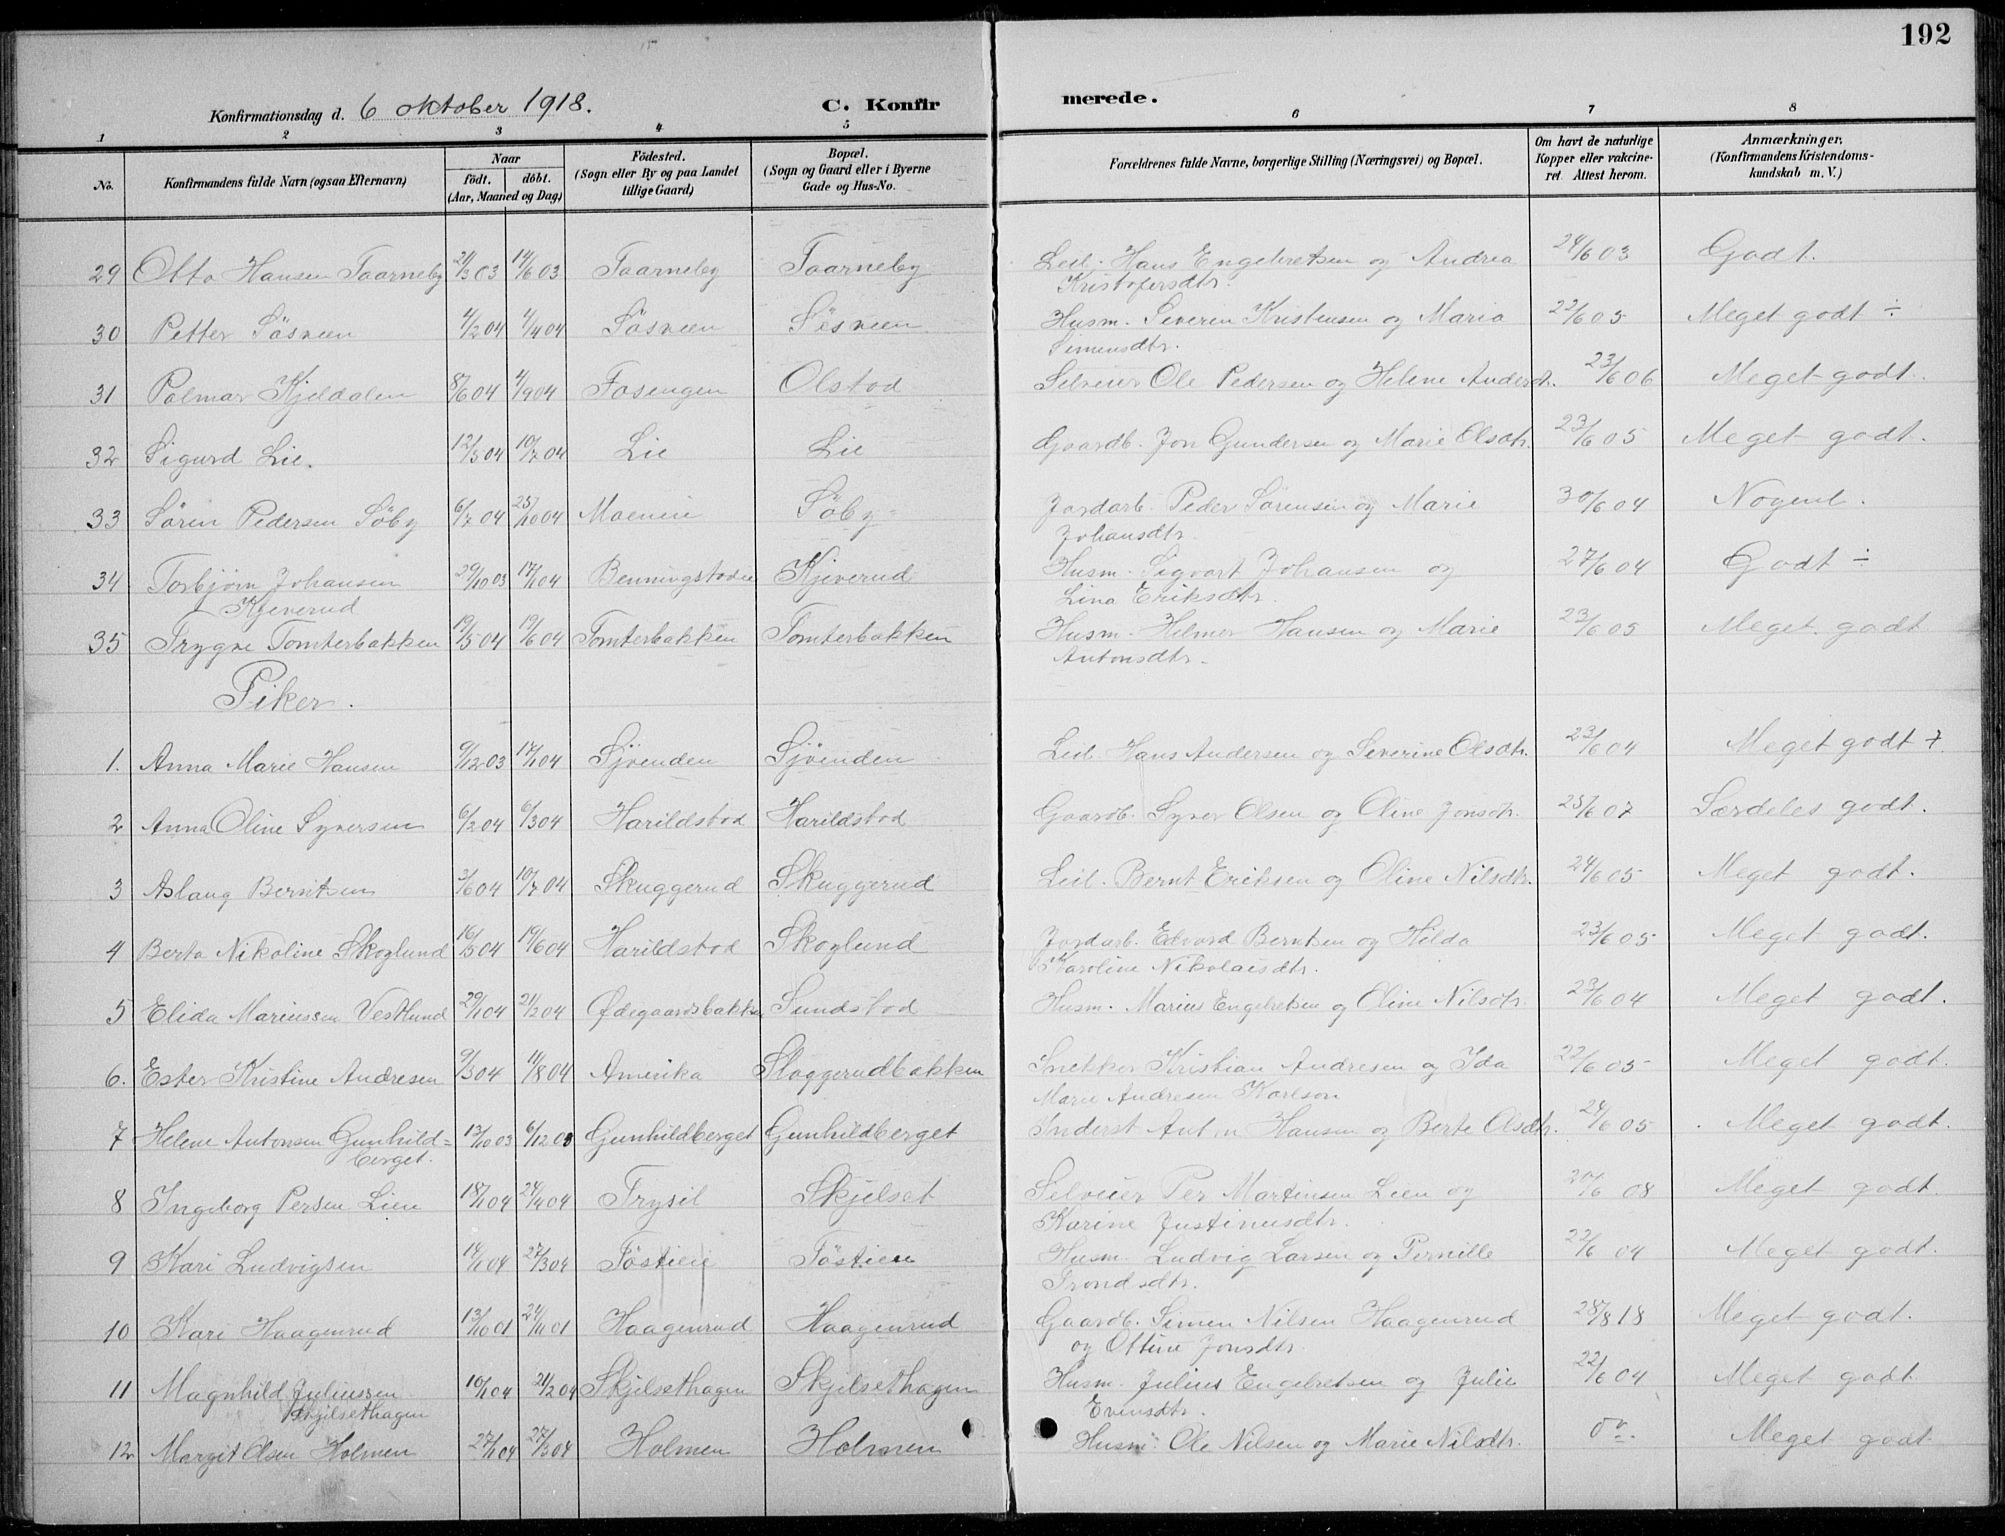 192
Konfirmationsdag d. 6 oktober 1918. C. Konfir merede.
1 2 3 4 5 6 7 8
No. Konfirmandens fulde Navn (ogsaa Efternavn) Naar födt. döbt. (Aar, Maaned og Dag) Födested. (Sogn eller By og paa Landet tillige Gaard) Bopæl. (Sogn og Gaard eller i Byerne Gade og Hus-No. Forældrenes fulde Navne, borgerlige Stilling (Næringsvei) og Bopæl. Om havt de naturlige Kopper eller vakcineret. Attest herom. Anmærkninger. (Konfirmandens Kristendomskundskab m. V.)
29 Otto Hansen Taarneby 21/3 03 14/6 03 Taarneby Taarneby Leil. Hans Engebretsen og Andrea 24/6 03 Godt.
Kristofersdtr.
30 Petter Søsveen 4/2 04 4/4 04 Søsveen Søsveen Husm. Severin Kristensen og Maria 22/6 05 Meget godt ÷
Simensdtr.
31 Palmar Kjeldalen 8/6 04 4/9 04 Fosengen Olstad Selveier Ole Pedersen og Helene Andersdtr. 23/6 06 Meget godt.
32 Sigurd Lie. 12/5 04 10/7 04 Lie Lie Gaardb. Jon Gundersen og Marie Olsdtr. 23/6 05 Meget godt.
33 Søren Pedersen Søby 6/7 04 23/10 04 Moeneie Søby Jordarb. Peder Sørensen og Marie 30/6 04 Nogenl.
Johansdtr.
34 Torbjørn Johansen 29/10 03 17/1 04 Benningstadeie Kjeverud Husm. Sigvart Johansen og 27/6 04 Godt ÷
Kjeverud Lina Eriksdtr.
35 Trygve Tomterbakken 19/5 04 19/6 04 Tomterbakken Tomterbakken Husm. Helmer Hansen og Marie 23/6 05 Meget godt
Antonsdtr.
Piker.
1. Anna Marie Hansen 9/12 03 17/1 04 Sjøenden Sjøenden Leil. Hans Andersen og Severine Olsdtr. 23/6 04 Meget godt +
2 Anna Oline Syversen 6/2 04 6/3 04 Harildstad Harildstad Gaardb. Syver Olsen og Oline Jonsdtr. 25/6 07 Særdeles godt.
3 Aslaug Berntsen 3/6 04 10/7 04 Skuggerud Skuggerud Leil. Bernt Eriksen og Oline Nilsdtr. 24/6 05 Meget godt.
4 Berta Nikoline Skoglund 16/5 04 19/6 04 Harildstad Skoglund Jordarb. Edvard Berntsen og Hilda 23/6 05 Meget godt.
Karoline Nikolaisdtr.
5 Elida Mariussen Vestlund 29/1 04 21/2 04 Ødegaardsbakken Sundstad Husm. Marius Engebretsen og Eline Nilsdtr. 23/6 04 Meget godt.
6. Ester Kristine Andresen 9/3 04 11/8 04 Amerika Slaggerudbakken Snekker Kristian Andresen og Ida 22/6 05 Meget godt.
Marie Andresen Karlson
7 Helene Antonsen Gunhild- 13/10 03 6/12 03 Gunhildberget Gunhildberget Inderst Anton Hansen og Berte Olsdtr. 24/6 05 Meget godt.
berget.
8 Ingeborg Persen Lien 18/1 04 24/4 04 Trysil Skjelset Selveier Per Martinsen Lien og 20/6 08 Meget godt.
Karine Justinusdtr.
9 Kari Ludvigsen 14/1 04 27/3 04 Tøstieie Tøstieie Husm. Ludvig Larsen og Pernille 22/6 04 Meget godt.
Trondsdtr.
10 Kari Haagenrud 13/10 01 24/11 01 Haagenrud Haagenrud Gaardb. Simen Nilsen Haagenrud 25/8 18 Meget godt.
og Ottine Jonsdtr.
11 Magnhild Juliussen 10/1 04 21/2 04 Skjelsethagen Skjelsethagen Husm. Julius Engebretsen og Julie 22/6 04 Meget godt
Skjelsethagen Evensdtr.
12 Margit Olsen Holmen 27/1 04 27/3 04 Holmen Holmen Husm. Ole Nilsen og Marie Nilsdtr. Meget godt